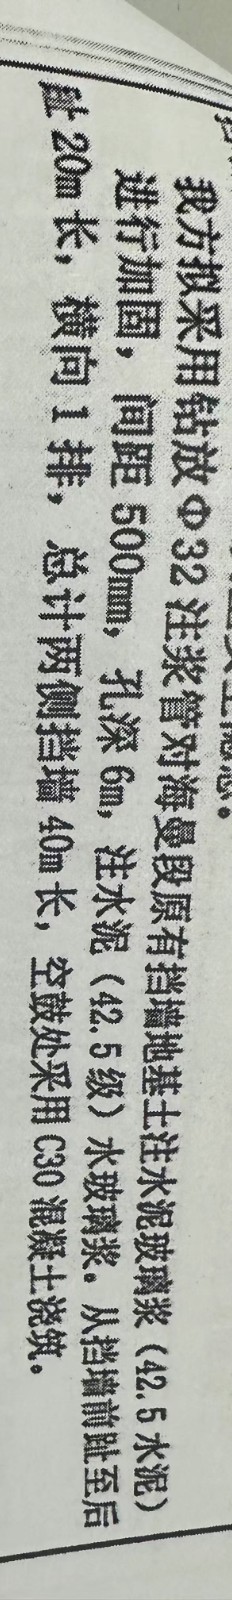 我方拟采用钻放Φ32注浆管对海曼段原有挡墙地基土注水泥玻璃浆（42.5水泥）
进行加固，间距500mm，孔深6m，注水泥（42.5级）水玻璃浆。从挡墙前趾至后
趾20m长，横向1排，总计两侧挡墙40m长，空鼓处采用C30混凝土浇筑。